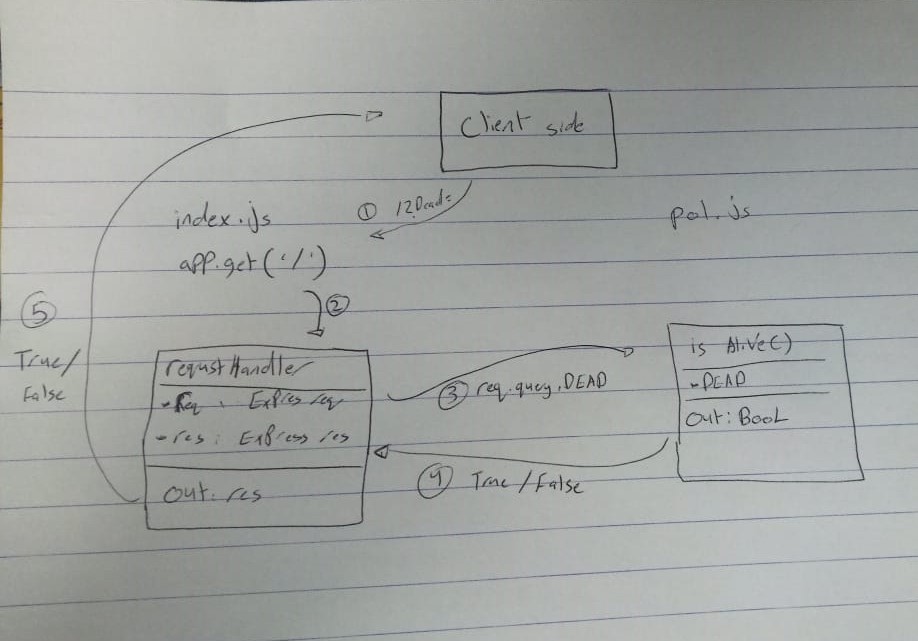 Client side
index.js
① 12Dead=
pal.js
app.get('/')
②
⑤
True/
False
requstHandler
- Req : ExPres req
- res : ExPress res
Out: res
③ req.quey.DEAD
is Alive()
- DEAD
Out: BooL
④ True/False